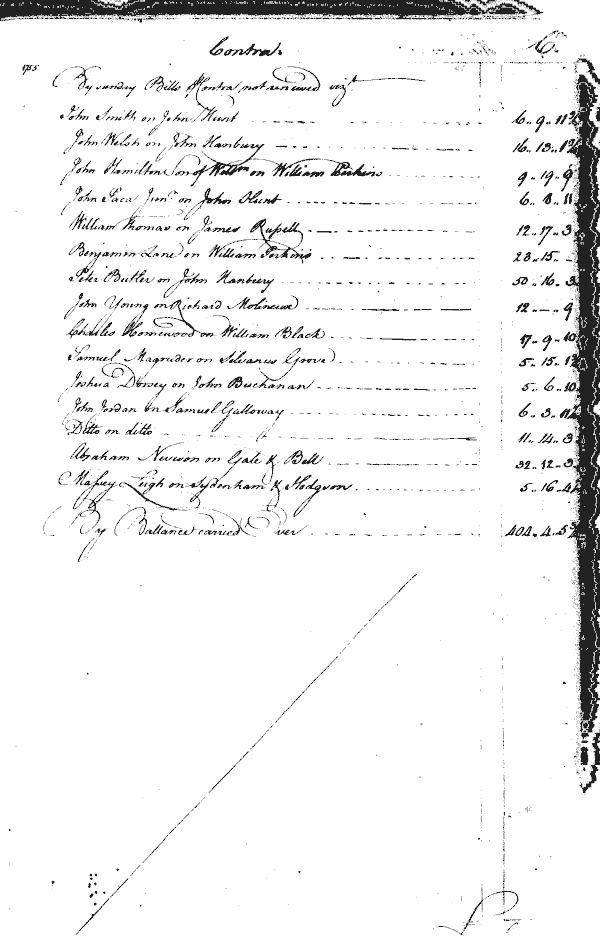 Contra.
1755
By sundry Bills Contra not renewed vizt
John Smith on John Hunt 6.. 9.. 11½
John Welsh on John Hanbury 16.. 13..
John Hamilton Son of Willm on William Perkins 9.. 19.. 9
John Jun on John Hunt 6.. 8.. 11
William Thomas on James Russell 12.. 17.. 3
Benjamin Lane on William Perkins 23.. 15..
Peter Butler on John Hanbury 50.. 16.. 3
John Young on Richard Molineux 12.. — .. 9
Charles Homewood on William Black 17.. 9.. 10
Samuel Magruder on Silvanus Grove 5.. 15..
Joshua Dorsey on John Buchanan 5.. 6.. 10
John Jordan on Samuel Galloway 6.. 3..
Ditto on ditto 11.. 14.. 3
Abraham on Gale & Bell 32.. 12.. 3
Massey Leigh on Sydenham & Hodgson 5.. 16..
By Ballance carried Over 404.. 4..